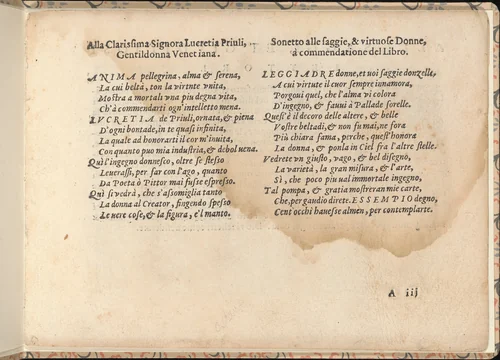 Alla Clarissima Signora Lucretia Priuli,
Gentildonna Venetiana.
ANIMA pellegrina, alma & serena,
La cui beltà, ton la virtute vnita,
Mostra a mortali vna piu degna vita,
Ch'à commendarti ogn'intelletto mena.
LVCRETIA de Priuli, ornata, & piena
D'ogni bontade, in te quasi infinita,
La quale ad honorarti il cor m'inuita,
Con quanto puo mia industria, & debol uena.
Quì l'ingegno donnesco, oltre se stesso
Leuerassi, per far con l'ago, quanto
Da Poeta ò Pittor mai fusse espresso.
Quì si vedrà, che s'assomiglia tanto
La donna al Creator, fingendo spesso
Le uere cose, & la figura, e'l manto.
Sonetto alle saggie, & virtuose Donne,
à commendatione del Libro.
LEGGIADRE donne, et uoi saggie donzelle,
A cui virtute il cuor sempre innamora,
Porgoui quel, che l'alma vi colora
D'ingegno, & fauui à Pallade sorelle.
Quest'è il decoro delle altere, & belle
Vostre beltadi, & non fu mai, ne fora
Più chiara fama, perche, quest'honora
La donna, & ponla in Ciel fra l'altre stelle.
Vedrete vn giusto, vago, & bel disegno,
La varietà, la gran misura, & l'arte,
Sì, che poco piu ual immortale ingegno,
Tal pompa, & gratia mostreran mie carte,
Che, per gaudio direte. ESSEMPIO degno,
Cent'occhi hauesse almen, per contemplarte.
A iij